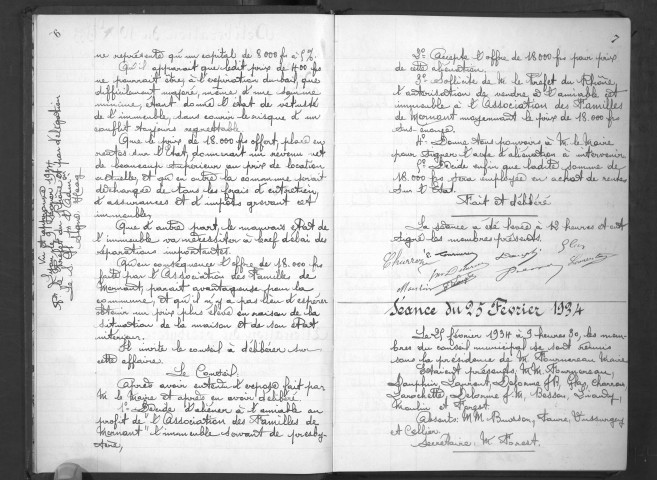 6
ne représente qu'un capital de 8.000 frs à 5%.
Qu'il apparait que ledit prix de 400 frs
ne pourrait être, à l'expiration du bail, que
difficilement majoré, même d'une somme
minime, étant donné l'état de vétusté
de l'immeuble, sans courir le risque d'un
conflit toujours regrettable.
Que le prix de 18.000 frs offert, placé en
rentes sur l'Etat, donnerait un revenu net
de beaucoup supérieur au prix de location
actuelle, et qu'en outre la commune serait
déchargée de tous les frais d'entretien,
d'assurances et d'impôts grevant cet
immeuble.
Que d'autre part, le mauvais état de
l'immeuble va nécessiter à bref délai des
réparations importantes.
Qu'en conséquence l'offre de 18.000 frs
faite par l'Association des Familles de
Mornant, parait avantageuse pour la
commune, et qu'il n'y a pas lieu d'espérer
obtenir un prix plus élevé en raison de la
situation de la maison et de son état
intérieur.
Il invite le conseil à délibérer sur
cette affaire.
Le Conseil:
Après avoir entendu l'exposé fait par
M le Maire et après en avoir délibéré.
1° Décide d'aliéner à l'amiable au
profit de "l'Association des Familles de
Mornant" l'immeuble servant de presby-
tère,
Vu et approuvé
7
2° Accepte l'offre de 18.000 frs pour prix
de cette aliénation.
3° Sollicite de M le Préfet du Rhône
l'autorisation de vendre à l'amiable cet
immeuble à l'Association des Familles
de Mornant moyennant le prix de 18.000 frs
sus-énoncé.
4° Donne tous pouvoirs à M le Maire
pour signer l'acte d'aliénation à intervenir.
5° Décide enfin que ladite somme de
18.000 frs sera employée en achat de rentes
sur l'Etat.
Fait et délibéré.
La séance a été levée à 12 heures et ont
signé les membres présents.
Charron
Moulin
Séance du 25 Février 1934
Le 25 février 1934 à 9 heures 30, les mem-
bres du conseil municipal se sont réunis
sous la présidence de M Fournereau Maire
Etaient présents, MM. Fourgereau,
Dauphin Laurent, Delorme J.B., Gley, Charron
Larochette, Delorme J.M. Besson,
Moulin et Forest.
Absents: MM. Buisson, Faure,
et Collier.
Secrétaire: M. Forest.